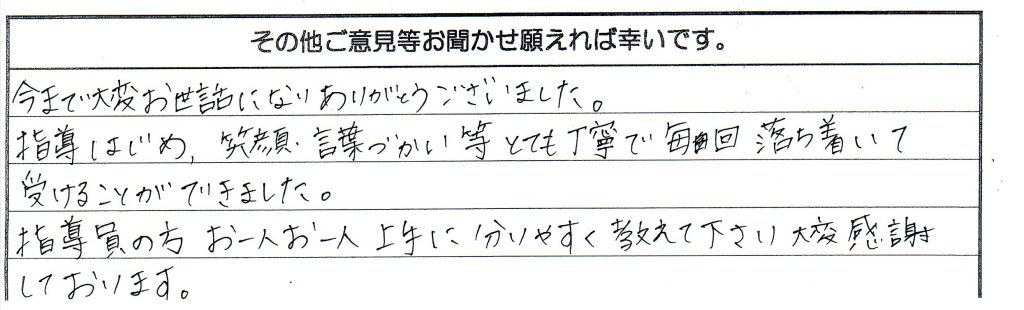 その他ご意見等お聞かせ願えれば幸いです。
今まで大変お世話になりありがとうございました。
指導はじめ、笑顔・言葉づかい等とても丁寧で毎回落ち着いて
受けることができました。
指導員の方お一人お一人上手に分りやすく教えて下さい大変感謝
しております。